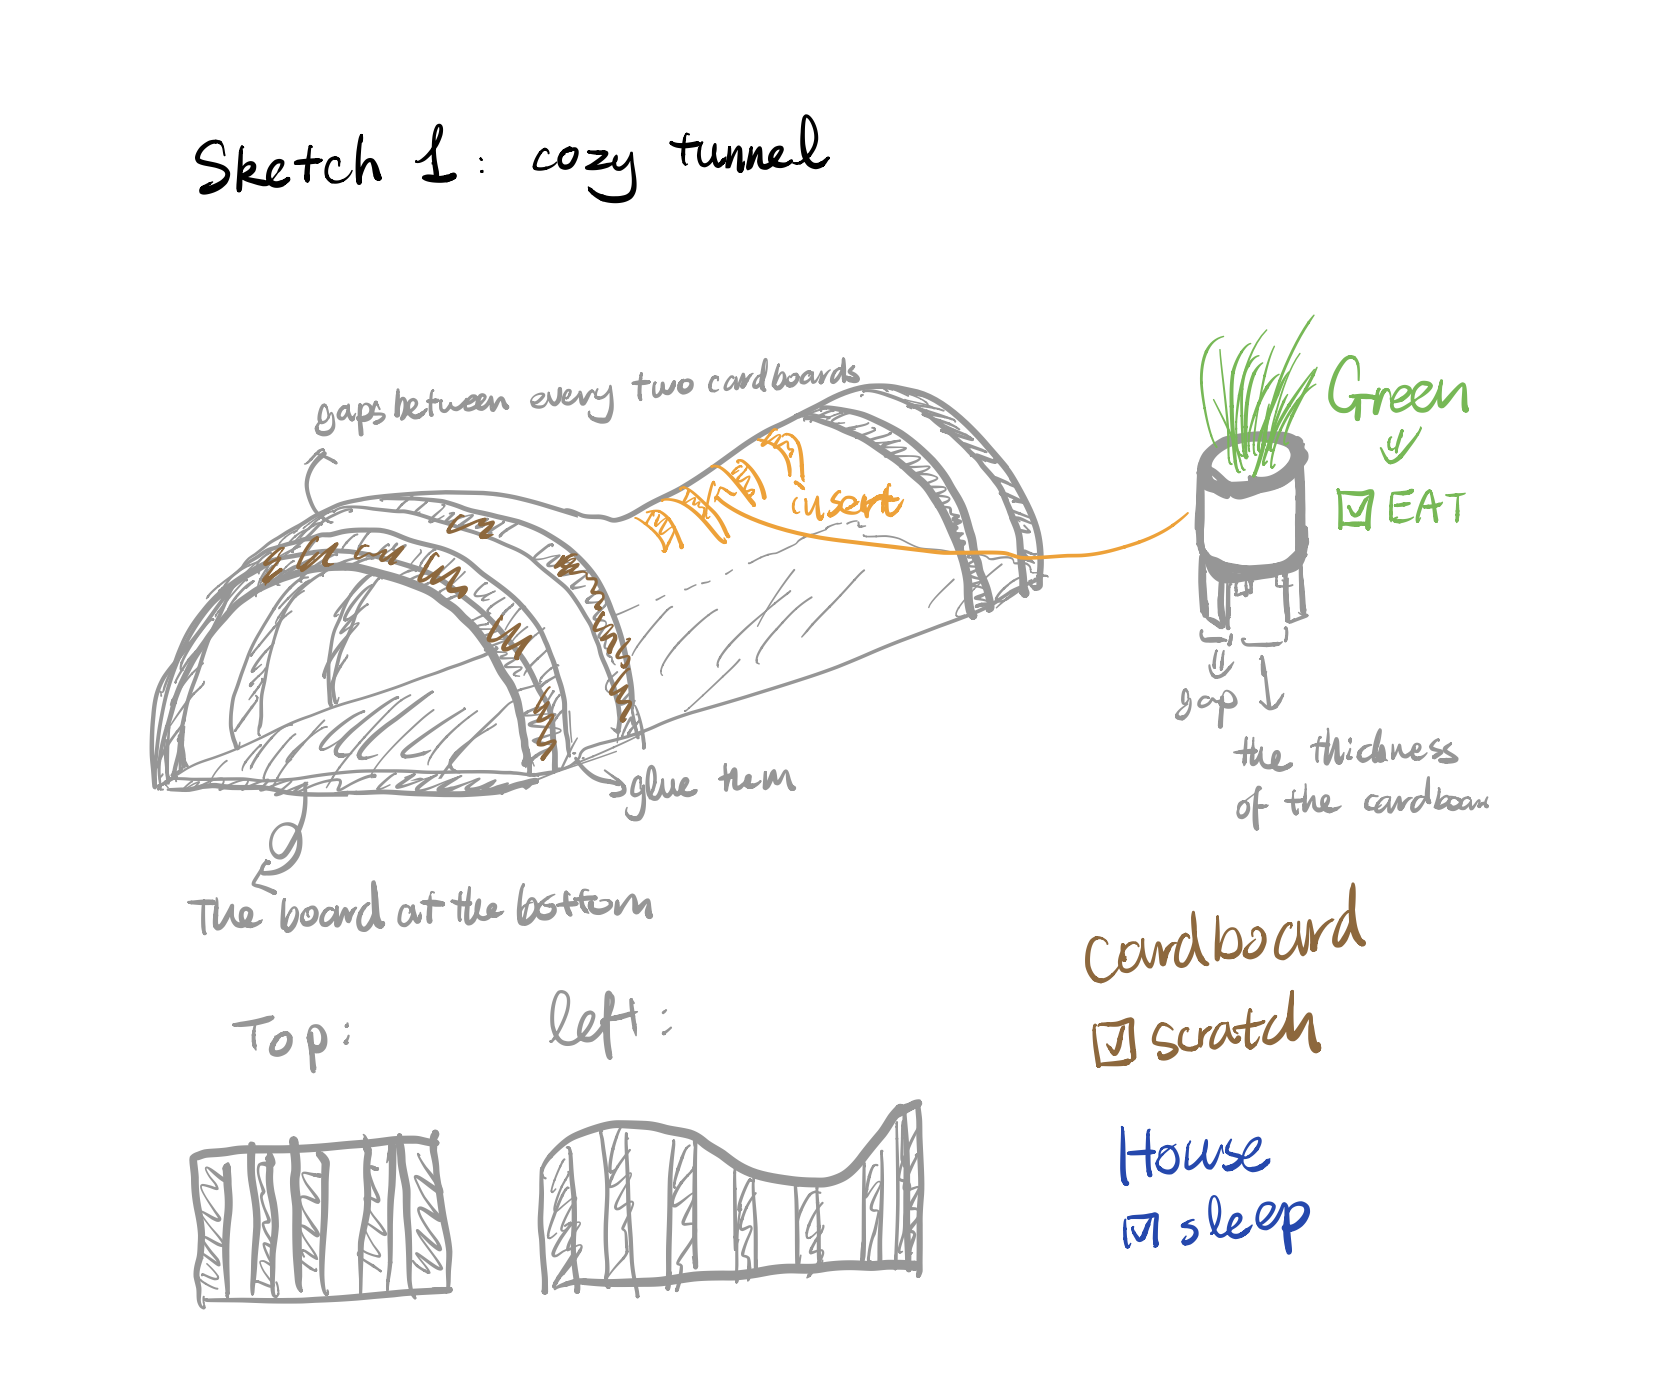 Sketch 1: cozy tunnel
gaps between every two cardboards
insert
Green
EAT
gap
the thickness
of the cardboar
glue them
The board at the bottom
Top:
left:
Cardboard
scratch
House
sleep